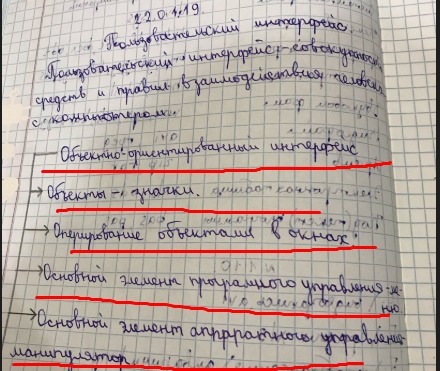 22.01.19
Пользовательский интерфейс.
Пользовательский интерфейс - совокупность
средств и правил взаимодействия человека
с компьютером.
Объектно-ориентированный интерфейс
→ Объекты - значки.
→ Оперирование объектами в окнах.
→ Основной элемент програмного управления - ме
ню
→ Основной элемент аппаратного управления -
манипулятор